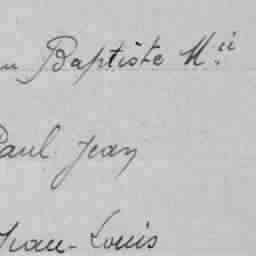 Baptiste Mii
Paul Jean
Jean-Louis